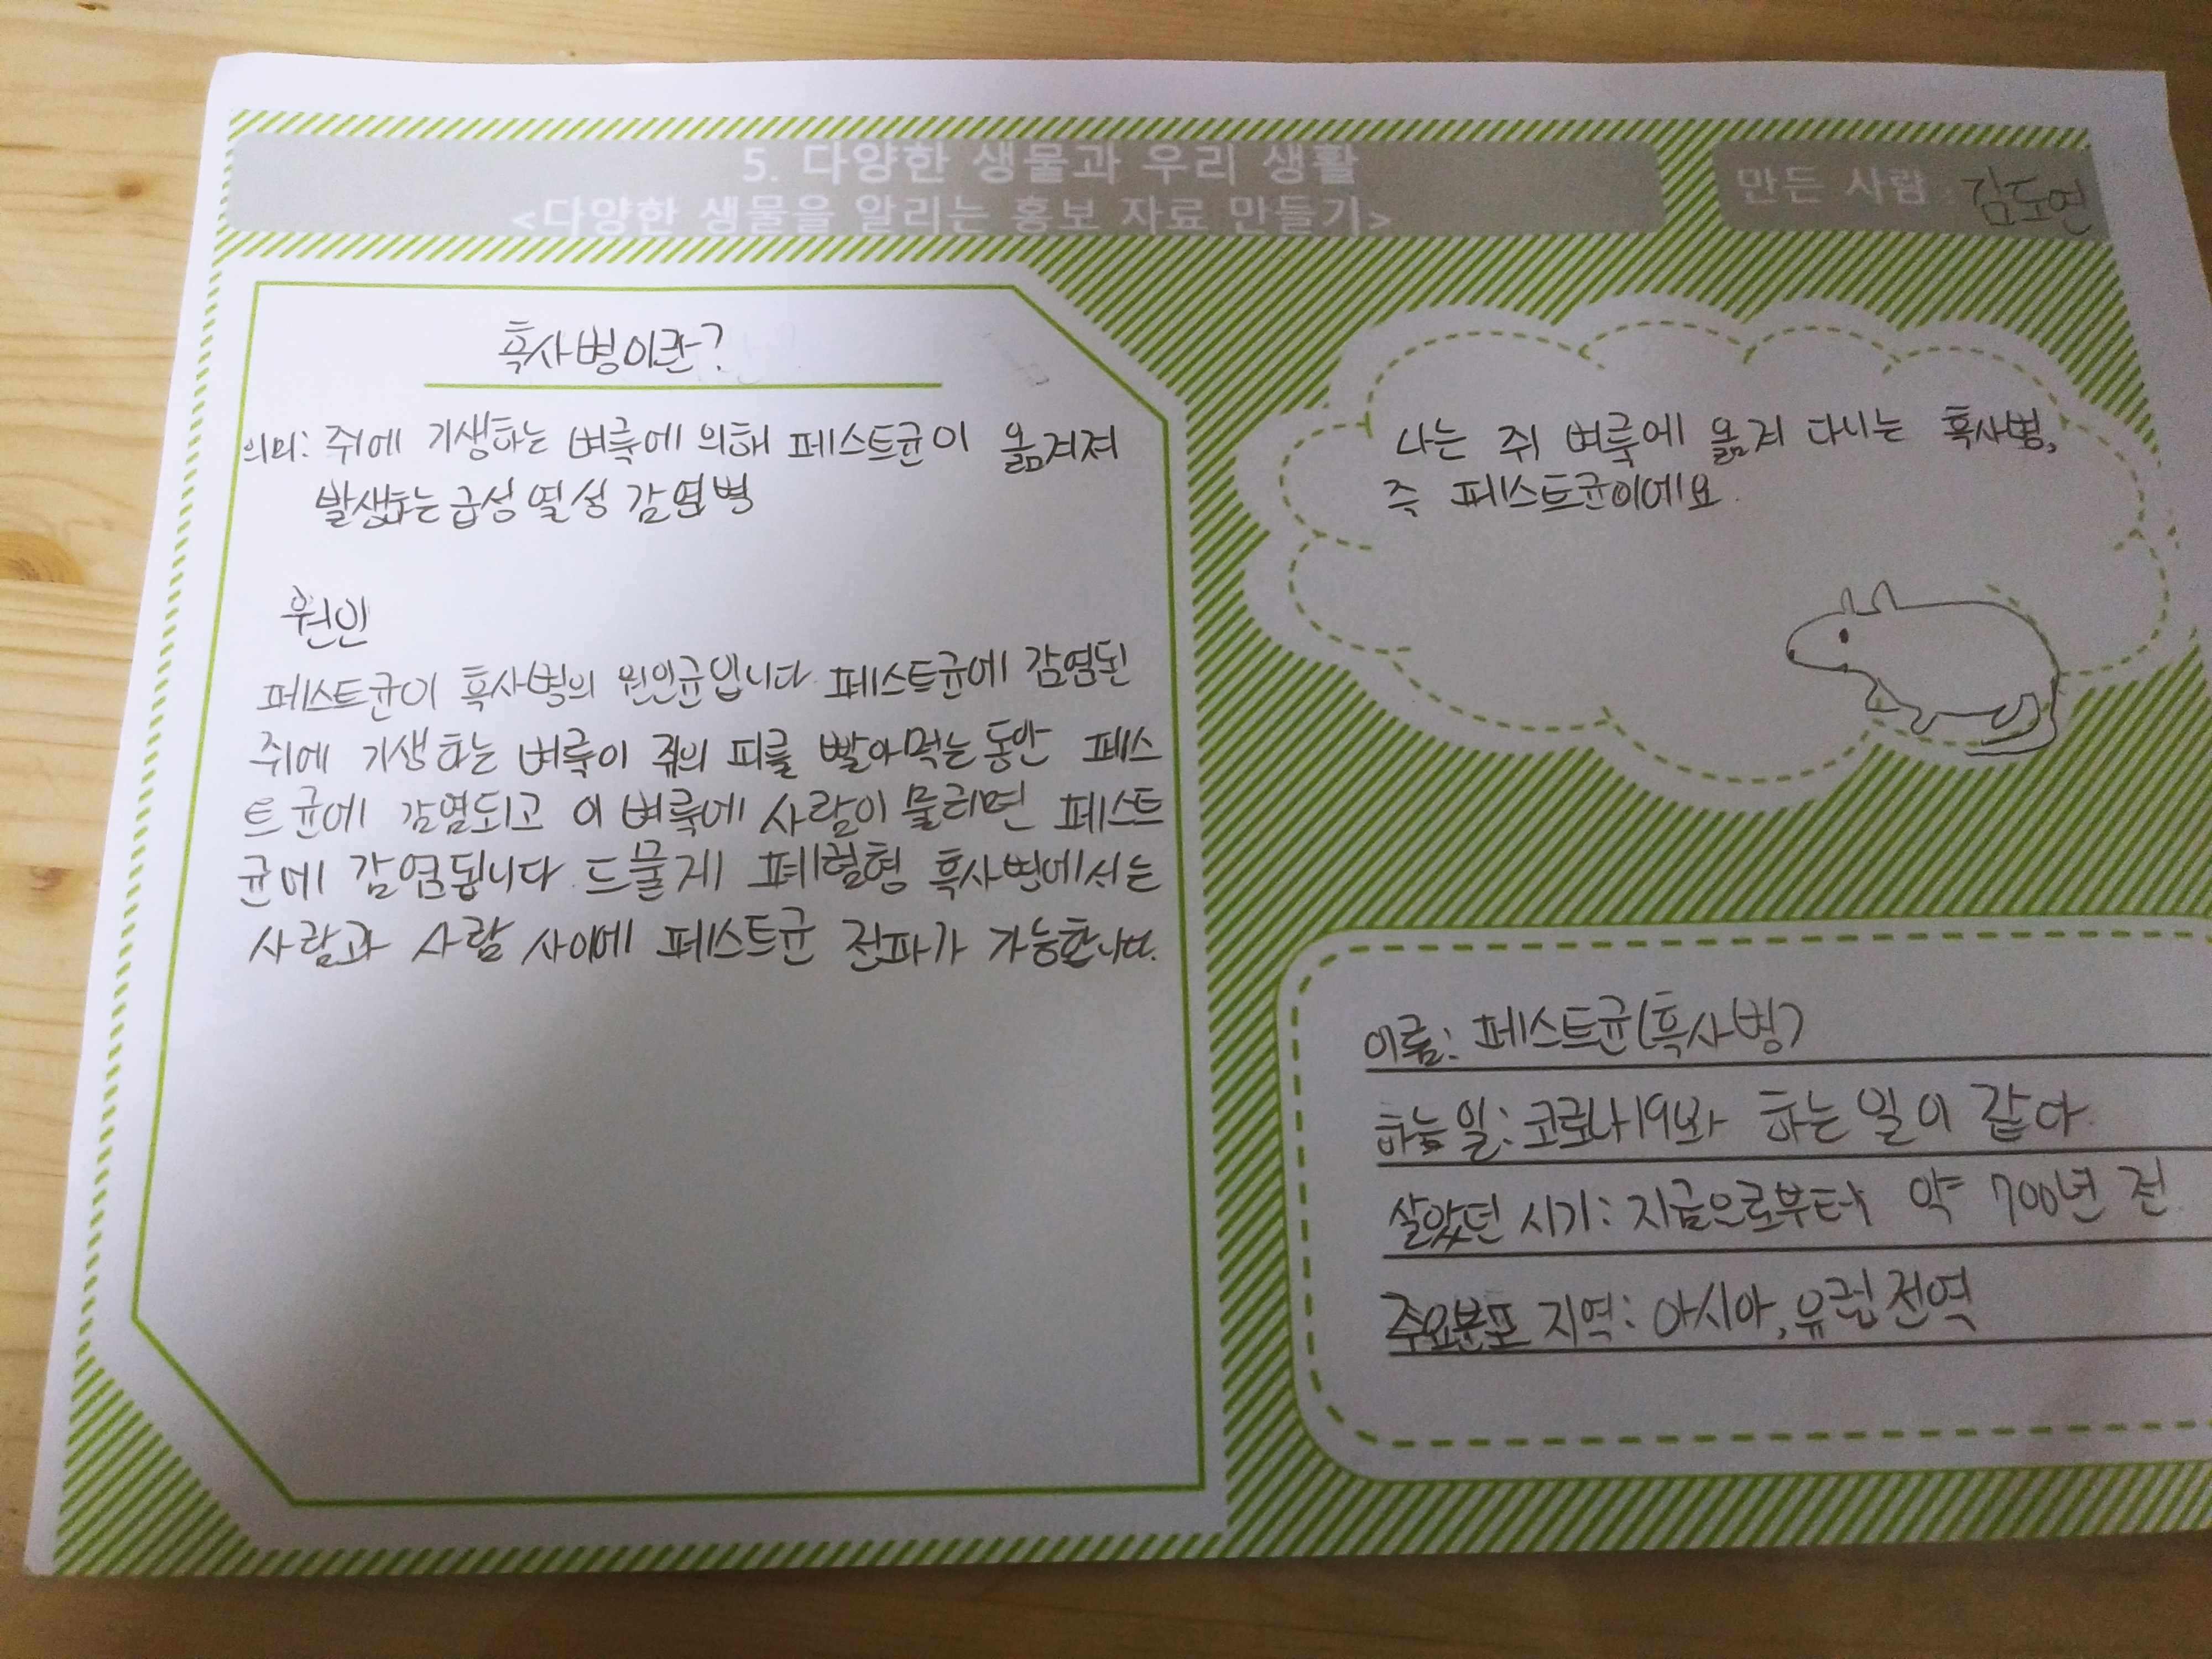 5. 다양한 생물과 우리 생활
<다양한 생물을 알리는 홍보 자료 만들기>
만든 사람 : 김도연
흑사병이란?
의미: 쥐에 기생하는 벼룩에 의해 페스트균이 옮겨져
발생하는 급성 열성 감염병
원인
페스트균이 흑사병의 원인균입니다. 페스트균에 감염된
쥐에 기생하는 벼룩이 쥐의 피를 빨아먹는 동안 페스
트균에 감염되고 이 벼룩에 사람이 물리면 페스트
균에 감염됩니다. 드물게 폐혈형 흑사병에서는
사람과 사람 사이에 페스트균 전파가 가능합니다.
나는 쥐 벼룩에 옮겨 다니는 흑사병,
즉 페스트균이에요.
이름: 페스트균(흑사병)
하는 일: 코로나19와 하는 일이 같아.
살았던 시기: 지금으로부터 약 700년 전
주요분포 지역: 아시아, 유럽 전역